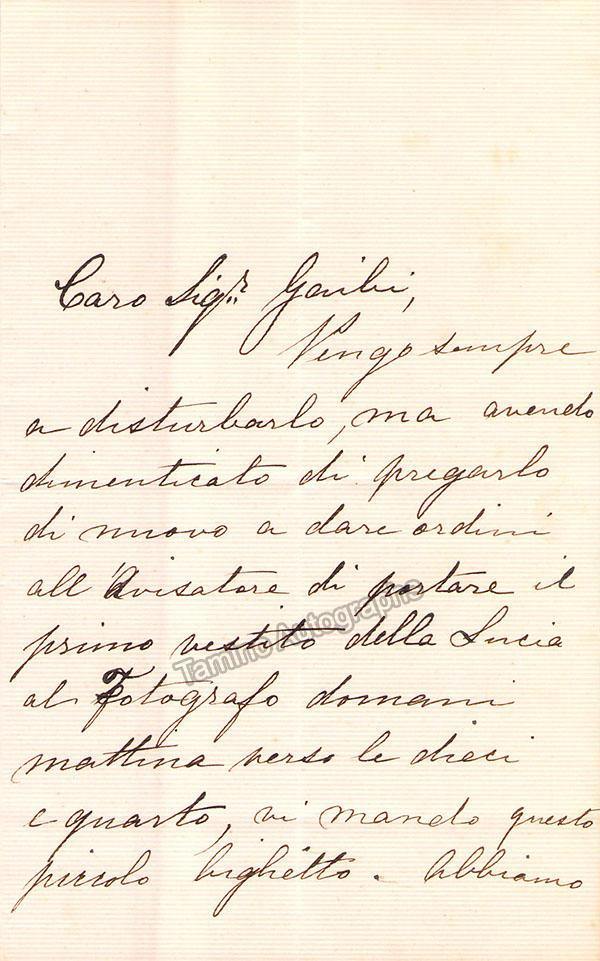 Caro Sigr. Gailii,
Vengo sempre
a disturbarlo, ma avendo
dimenticato di pregarlo
di nuovo a dare ordini
all'Avisatore di portare il
primo vestito della Lucia
Tamino Autographs
al Fotografo domani
mattina verso le dieci
e quarto, vi mando questo
piccolo bighetto. Abbiamo